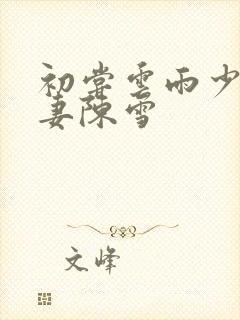 初尝雲雨少
妻陳雪
文峰